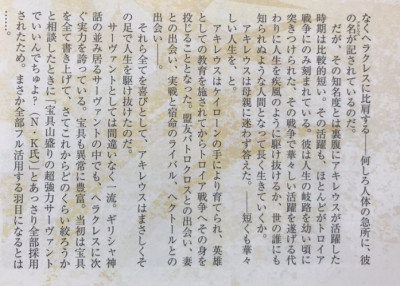 なくヘラクレスに比肩する――何しろ人体の急所に、彼
の名が記されているのだ。
だが、その知名度とは裏腹にアキレウスが活躍した
時期は比較的短い。その活躍も、ほとんどがトロイア
戦争にのみ刻まれている。彼は人生の岐路を幼い頃に
突きつけられた。その戦争で華々しい活躍を遂げる代
わりに人生を疾風のように駆け抜けるか、世の誰にも
知られぬような人間となって長く生きていくか。
アキレウスは母親に迷わず答えた。――短くも華々
しい人生を、と。
アキレウスはケイローンの手により育てられ、英雄
としての教育を施されてからトロイア戦争へその身を
投じることとなった。盟友パトロクロスとの出会い、妻
との出会い、実戦と宿命のライバル、ヘクトールとの
出会い――。
それら全てを喜びとして、アキレウスはまさしくそ
の足で人生を駆け抜けたのだ。
サーヴァントとしては間違いなく一流。ギリシャ神
話の並み居るサーヴァントの中でも、ヘラクレスに次
ぐ実力を誇っている。宝具も異常に豊富。当初は宝具
を全て書き上げて、さてこれからどのくらい絞ろうか
と相談したときに「宝具山盛りの超強力サーヴァント
でいいんでちゅよ？（N・K氏）」とあっさり全部採用
されたため。まさか全部フル活用する羽目になるとは